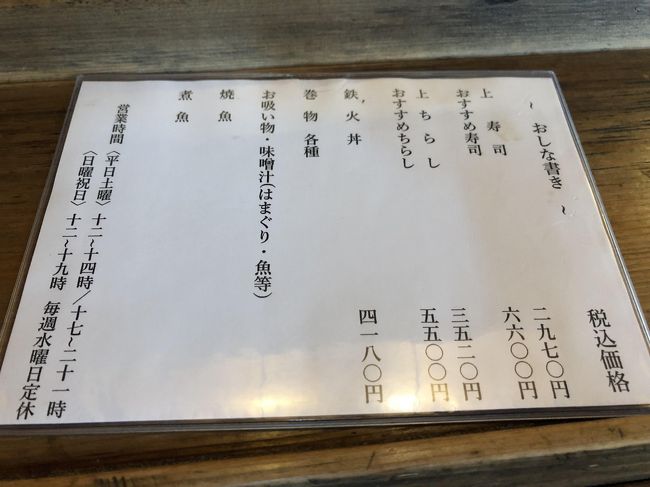 ～ おしな書き ～
税込価格
上 寿 司 二九七〇円
おすすめ寿司 六六〇〇円
上 ち ら し 三五二〇円
おすすめちらし 五五〇〇円
鉄 火 丼 四一八〇円
巻 物 各種
お吸い物・味噌汁(はまぐり・魚等)
焼 魚
煮 魚
営業時間 〈平日土曜〉 十二～十四時/十七～二十一時
〈日曜祝日〉 十二～十九時 毎週水曜日定休